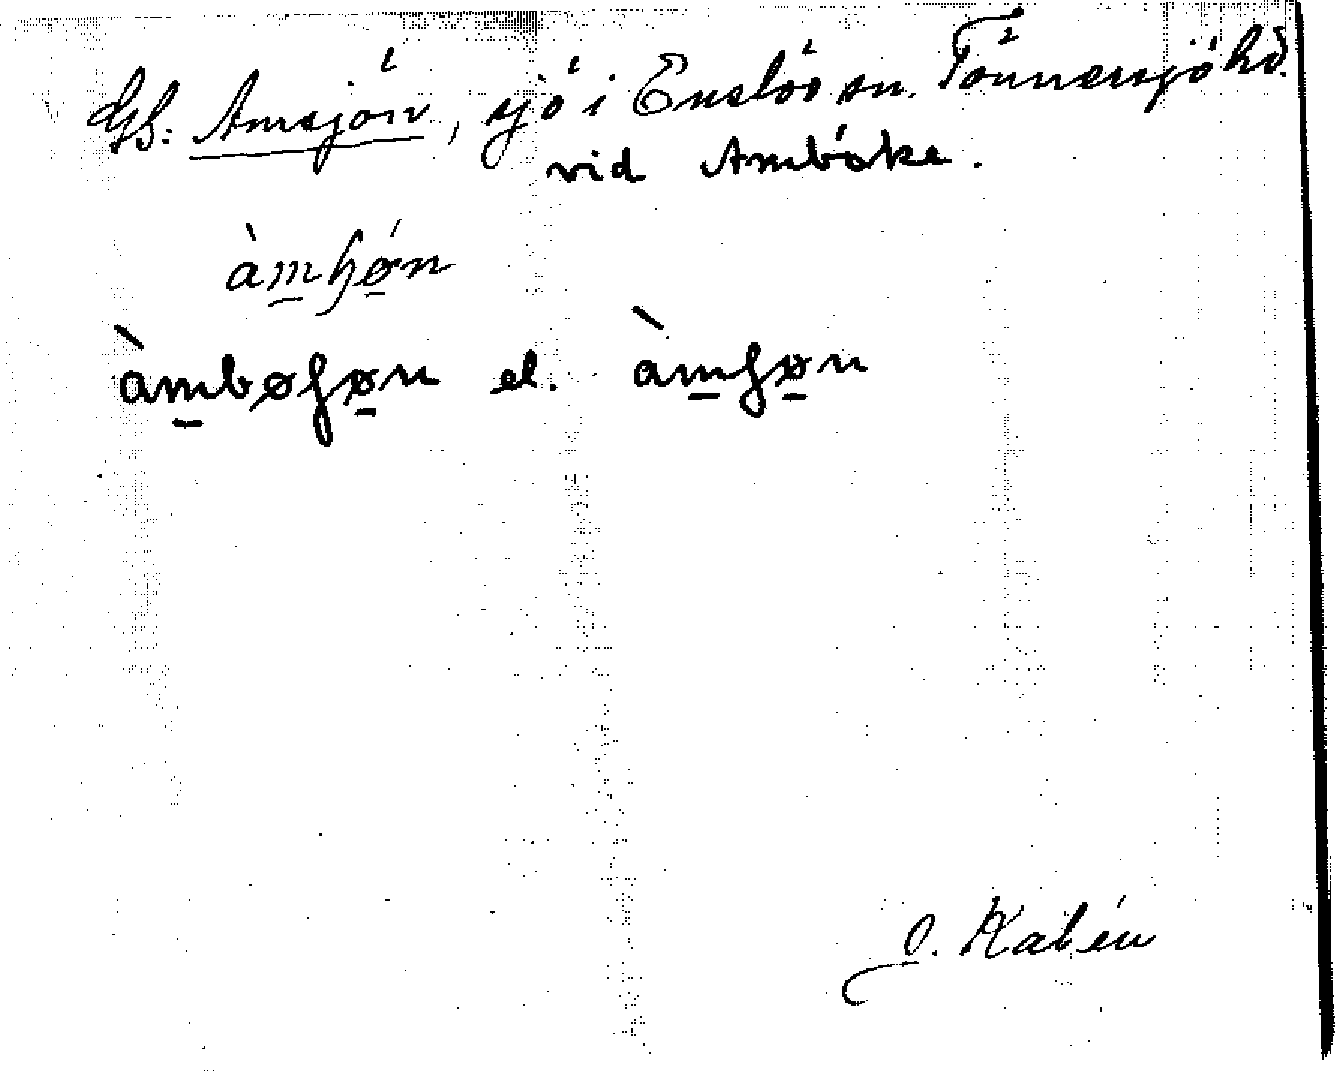 Gs. Amsjön, sjö i Enslöv sn. Tönnersjö hd.
vid Amböke.
àmɧø̱n
àm̱bøɧø̱n el. àm̱ɧø̱n
O. Kalén